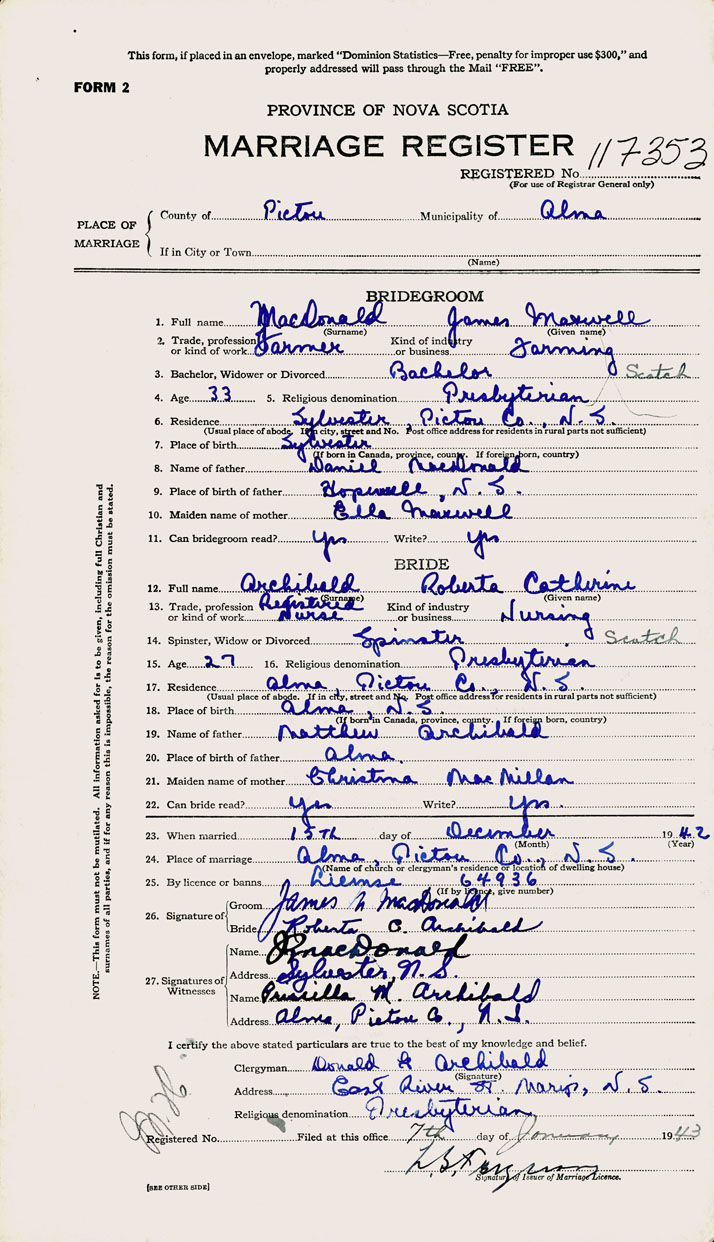 This form, if placed in an envelope, marked “Dominion Statistics—Free, penalty for improper use $300,” and
properly addressed will pass through the Mail “FREE”.
FORM 2
PROVINCE OF NOVA SCOTIA
MARRIAGE REGISTER
REGISTERED No. 117353
(For use of Registrar General only)
PLACE OF MARRIAGE
County of Pictou Municipality of Alma
If in City or Town
(Name)
BRIDEGROOM
1. Full name MacDonald James Maxwell
(Surname) (Given name)
2. Trade, profession or kind of work Farmer Kind of industry or business Farming
3. Bachelor, Widower or Divorced Bachelor Scotch
4. Age 33 5. Religious denomination Presbyterian
6. Residence Sylvester, Pictou Co., N.S.
(Usual place of abode. If in city, street and No. Post office address for residents in rural parts not sufficient)
7. Place of birth Sylvester
(If born in Canada, province, county. If foreign born, country)
8. Name of father Daniel MacDonald
9. Place of birth of father Hopewell, N.S.
10. Maiden name of mother Ella Maxwell
11. Can bridegroom read? Yes Write? Yes
BRIDE
12. Full name Archibald Roberta Catherine
(Surname) (Given name)
13. Trade, profession or kind of work Registered Nurse Kind of industry or business Nursing
14. Spinster, Widow or Divorced Spinster Scotch
15. Age 27 16. Religious denomination Presbyterian
17. Residence Alma, Pictou Co., N.S.
(Usual place of abode. If in city, street and No. Post office address for residents in rural parts not sufficient)
18. Place of birth Alma, N.S.
(If born in Canada, province, county. If foreign born, country)
19. Name of father Matthew Archibald
20. Place of birth of father Alma
21. Maiden name of mother Christina MacMillan
22. Can bride read? Yes Write? Yes.
23. When married 15th day of December 1942
(Month) (Year)
24. Place of marriage Alma, Pictou Co., N.S.
(Name of church or clergyman's residence or location of dwelling house)
25. By licence or banns License 64936
(If by licence, give number)
26. Signature of
Groom James M MacDonald
Bride Roberta C. Archibald
27. Signatures of Witnesses
Name MacDonald
Address Sylvester, N.S.
Name Priscilla M. Archibald
Address Alma, Pictou Co., N.S.
I certify the above stated particulars are true to the best of my knowledge and belief.
Clergyman Donald A Archibald
(Signature)
Address East River St. Marys, N.S.
Religious denomination Presbyterian
Registered No. Filed at this office 7th day of January 1943
Signature of Issuer of Marriage Licence.
[SEE OTHER SIDE]
NOTE.—This form must not be mutilated. All information asked for is to be given, including full Christian and
surnames of all parties, and if for any reason this is impossible, the reason for the omission must be stated.